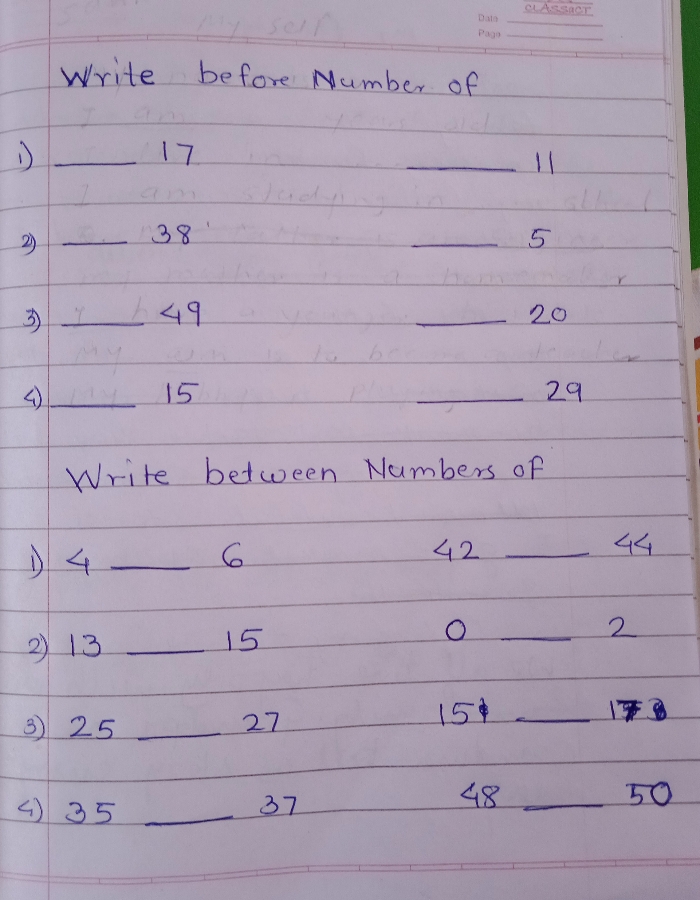 CLASSACT
Date
Page
Write before Number of
1) ____ 17 ____ 11
2) ____ 38 ____ 5
3) ____ 49 ____ 20
4) ____ 15 ____ 29
Write between Numbers of
1) 4 ____ 6 42 ____ 44
2) 13 ____ 15 0 ____ 2
3) 25 ____ 27 15 ____ 17
4) 35 ____ 37 48 ____ 50